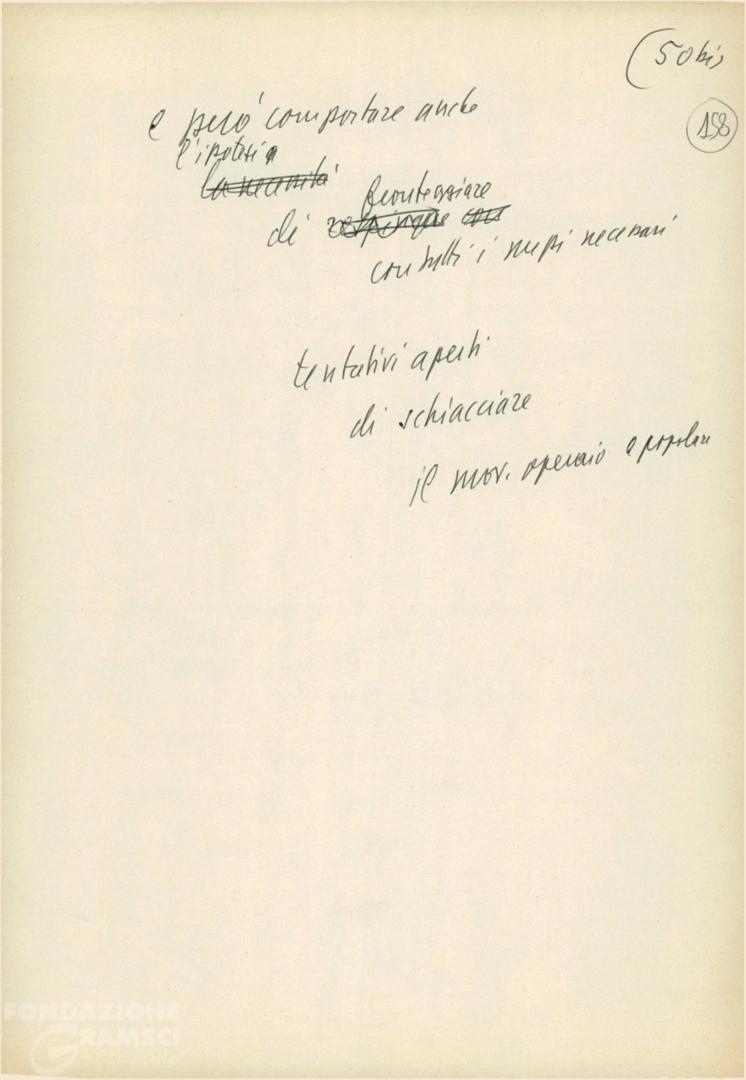 (50 bis
158
e però comportare anche
l'ipotesi
la necessità
fronteggiare
di respingere con
con tutti i mezzi necessari
tentativi aperti
di schiacciare
il mov. operaio e popolare
FONDAZIONE
GRAMSCI